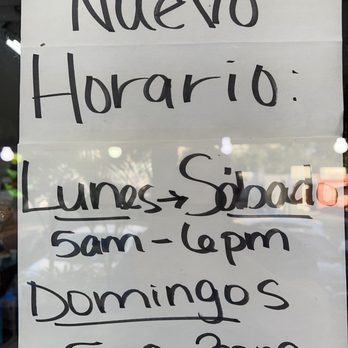 Nuevo
Horario:
Lunes→Sábado
5am-6pm
Domingos